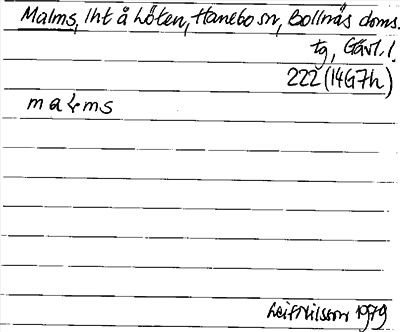 Malms, lht å Löten, Hanebo sn, Bollnäs doms.
tg, Gävl. l.
222 (14G7h)
maɬms
Leif Nilsson 1979